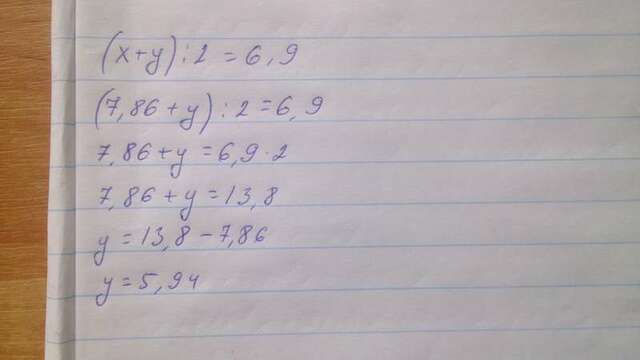 (x+y):2=6,9
(7,86+y):2=6,9
7,86+y=6,9·2
7,86+y=13,8
y=13,8-7,86
y=5,94